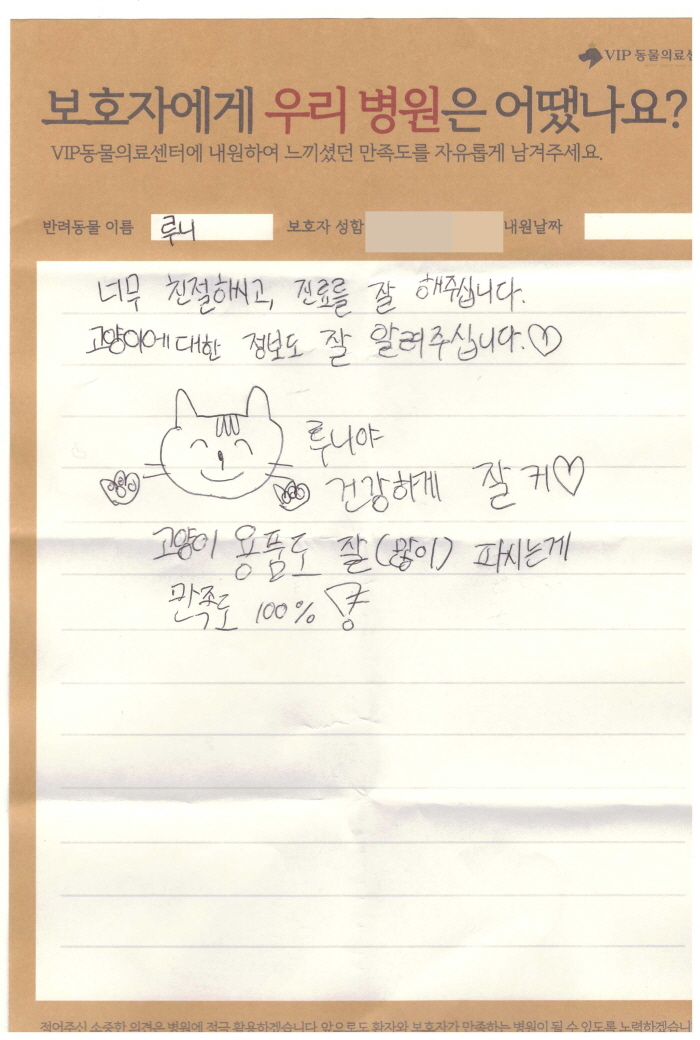 VIP 동물의료센
보호자에게 우리 병원은 어땠나요?
VIP동물의료센터에 내원하여 느끼셨던 만족도를 자유롭게 남겨주세요.
반려동물 이름 루니 보호자 성함 내원날짜
너무 친절하시고, 진료를 잘 해주십니다.
고양이에 대한 정보도 잘 알려주십니다.♡
루니야
건강하게 잘 커♡
고양이 용품도 잘(많이) 파시는게
만족도 100%
적어주신 소중한 의견은 병원에 적극 활용하겠습니다. 앞으로도 환자와 보호자가 만족하는 병원이 될 수 있도록 노력하겠습니